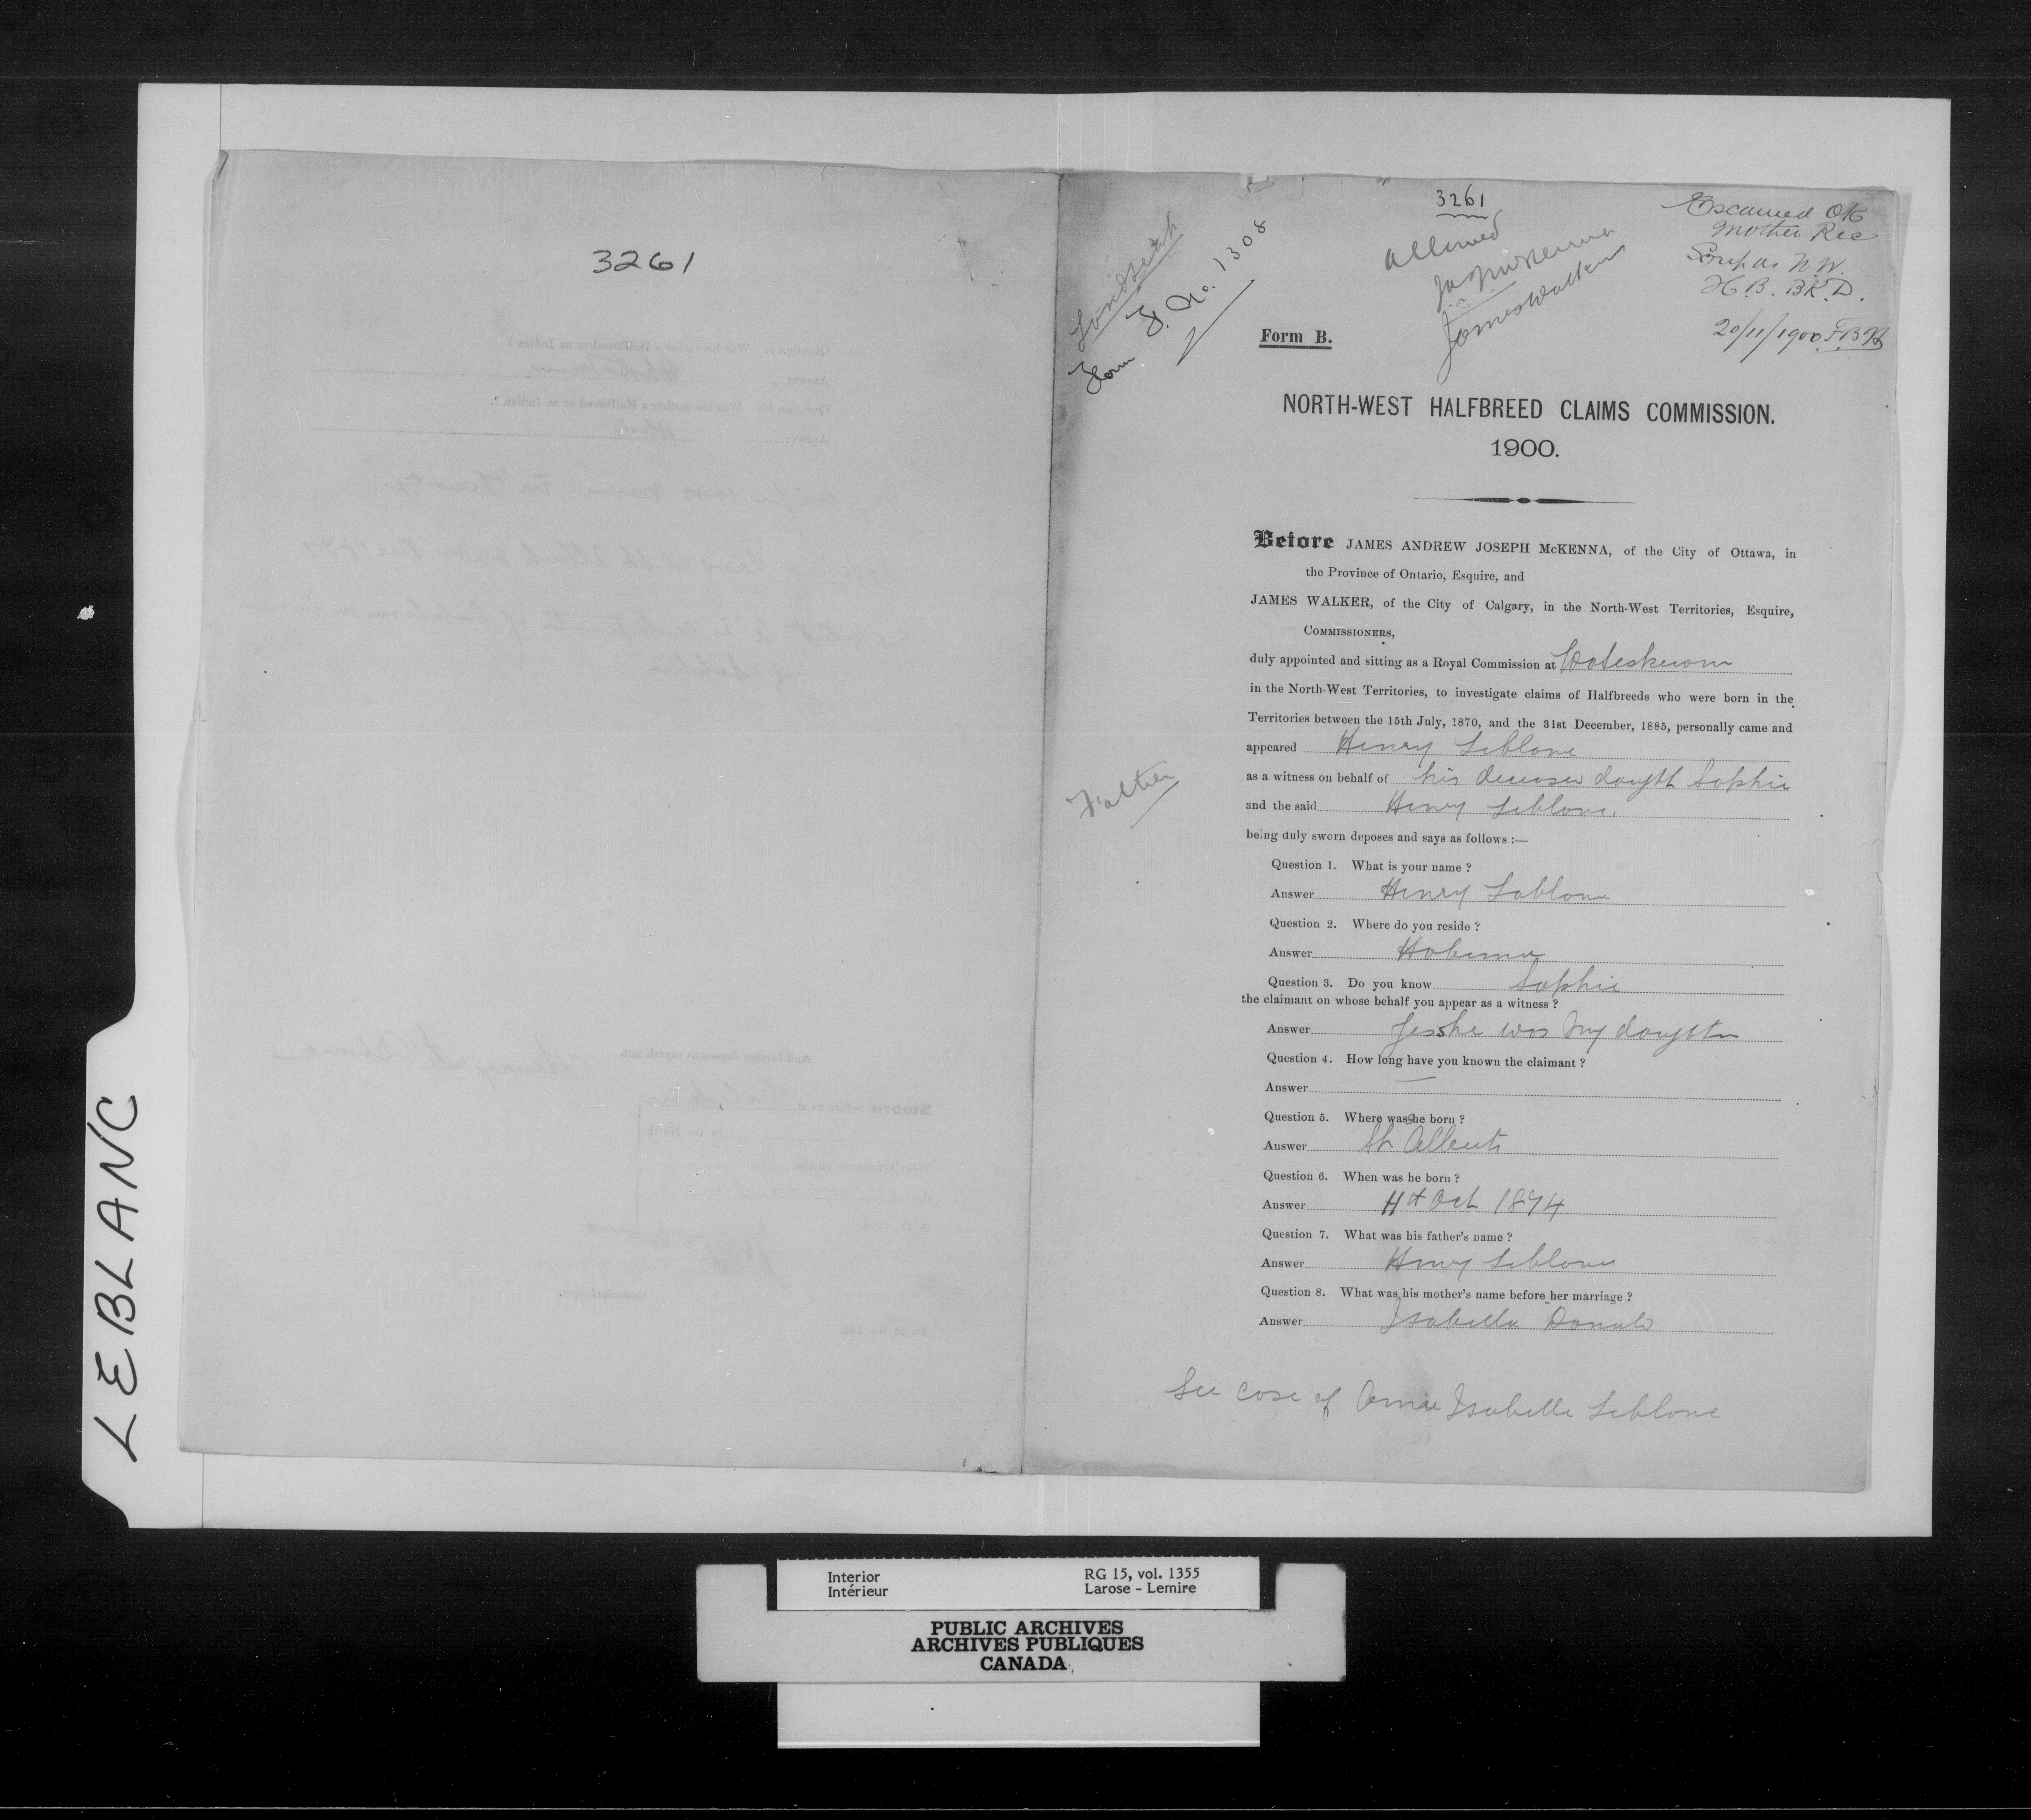 LEBLANC
3261
3261
allowed
JAJ McKenna
James Walker
Form F. No. 1308
Examined OK
Mother Rec
Scrip as N.W.
H.B. BK. D.
20/11/1900
Form B.
NORTH-WEST HALFBREED CLAIMS COMMISSION.
1900.
Before JAMES ANDREW JOSEPH McKENNA, of the City of Ottawa, in
the Province of Ontario, Esquire, and
JAMES WALKER, of the City of Calgary, in the North-West Territories, Esquire,
COMMISSIONERS,
duly appointed and sitting as a Royal Commission at Wateskewin
in the North-West Territories, to investigate claims of Halfbreeds who were born in the
Territories between the 15th July, 1870, and the 31st December, 1885, personally came and
appeared Henry Leblanc
as a witness on behalf of his deceased daught Sophie
and the said Henry Leblanc.
being duly sworn deposes and says as follows :—
Father
Question 1. What is your name ?
Answer Henry Leblanc
Question 2. Where do you reside ?
Answer Hobema
Question 3. Do you know Sophie
the claimant on whose behalf you appear as a witness ?
Answer Yes she was my daughter
Question 4. How long have you known the claimant ?
Answer —
Question 5. Where was she born ?
Answer St Alberts
Question 6. When was he born ?
Answer Oct 1874
Question 7. What was his father's name ?
Answer Henry Leblanc
Question 8. What was his mother's name before her marriage ?
Answer Isabella Donald
See case of Isabelle Leblanc
Interior
Intérieur
RG 15, vol. 1355
Larose - Lemire
PUBLIC ARCHIVES
ARCHIVES PUBLIQUES
CANADA